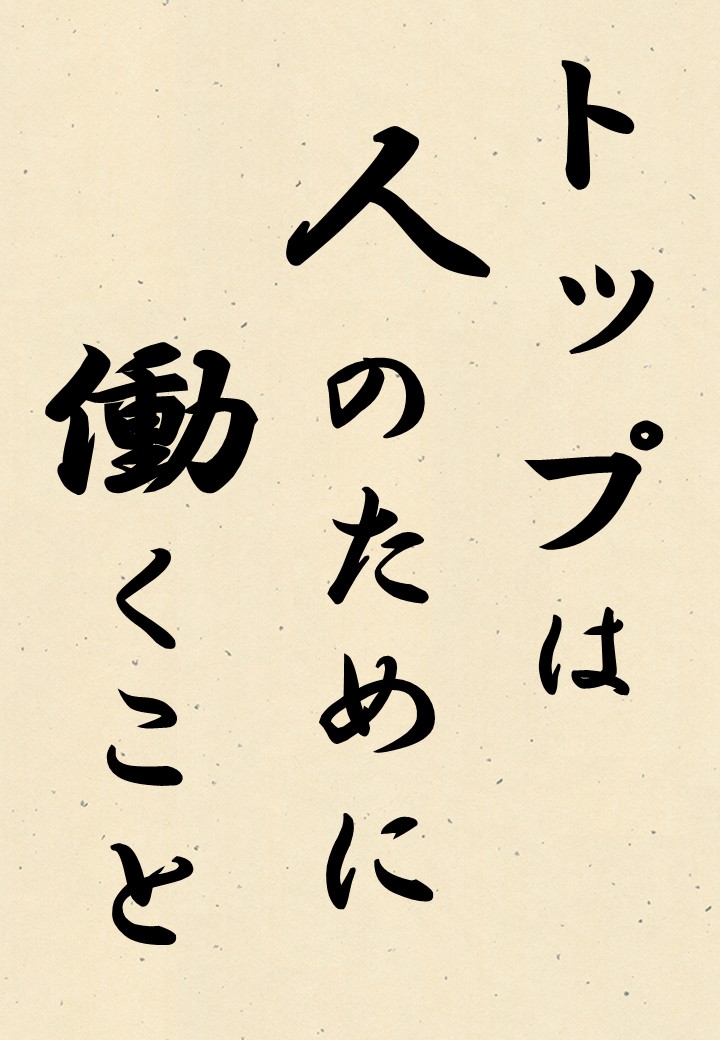 トップは
人のために
働くこと